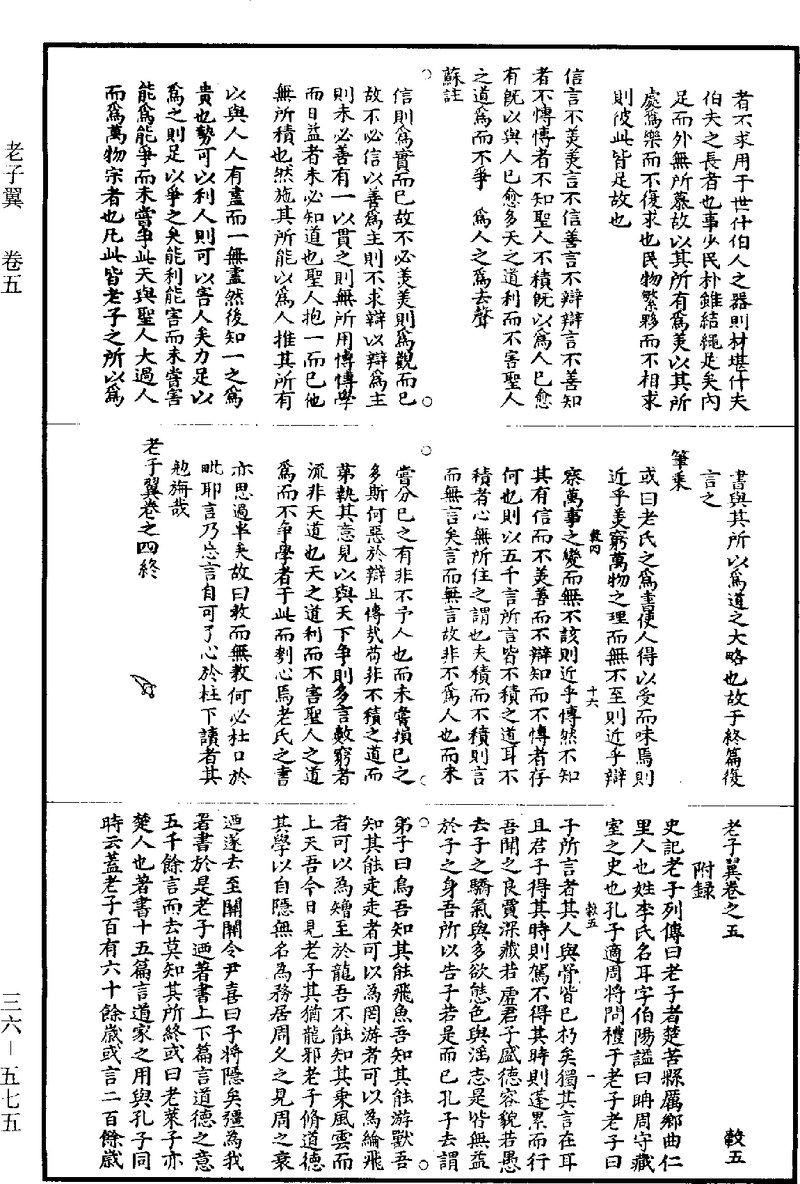 老子翼　卷五
者不求用于世什伯人之器則材堪什夫
伯夫之長者也事少民朴雖結繩足矣內
足而外無所慕故以其所有爲美以其所
處爲樂而不復求也民物繁夥而不相求
則彼此皆足故也
信言不美美言不信善言不辯辯言不善知
者不博博者不知聖人不積旣以爲人已愈
有旣以與人已愈多天之道利而不害聖人
之道爲而不爭　爲人之爲去聲
蘇註
信則爲實而已故不必美美則爲觀而已
故不必信以善爲主則不求辯以辯爲主
則未必善有一以貫之則無所用博博學
而日益者未必知道也聖人抱一而已他
無所積也然施其所能以爲人推其所有
以與人人有盡而一無盡然後知一之爲
貴也勢可以利人則可以害人矣力足以
爲之則足以爭之矣能利能害而未嘗害
能爲能爭而未嘗爭此天與聖人大過人
而爲萬物宗者也凡此皆老子之所以爲
書與其所以爲道之大略也故于終篇復
言之
筆乘
或曰老氏之爲書使人得以受而味焉則
近乎美窮萬物之理而無不至則近乎辯
察萬事之變而無不該則近乎博然不知
其有信而不美善而不辯知而不博者存
何也則以五千言所言皆不積之道耳不
積者心無所住之謂也夫積而不積則言
而無言矣言而無言故非不爲人也而未
嘗分已之有非不予人也而未嘗損已之
多斯何惡於辯且博哉苟非不積之道而
第執其意見以與天下爭則多言數窮者
流非天道也天之道利而不害聖人之道
爲而不爭學者于此而刳心焉老氏之書
亦思過半矣故曰教而無教何必杜口於
毗耶言乃忘言自可了心於柱下讀者其
勉旃哉
老子翼卷之四終
十六
老子翼卷之五　彀五
附錄
史記老子列傳曰老子者楚苦縣厲鄉曲仁
里人也姓李氏名耳字伯陽謚曰聃周守藏
室之史也孔子適周將問禮于老子老子曰
彀五　一
子所言者其人與骨皆已朽矣獨其言在耳
且君子得其時則駕不得其時則蓬累而行
吾聞之良賈深藏若虛君子盛德容貌若愚
去子之驕氣與多欲態色與淫志是皆無益
於子之身吾所以告子若是而已孔子去謂
弟子曰鳥吾知其能飛魚吾知其能游獸吾
知其能走走者可以為罔游者可以為綸飛
者可以為矰至於龍吾不能知其乘風雲而
上天吾今日見老子其猶龍邪老子脩道德
其學以自隱無名為務居周久之見周之衰
迺遂去至關關令尹喜曰子將隱矣彊為我
著書於是老子迺著書上下篇言道德之意
五千餘言而去莫知其所終或曰老萊子亦
楚人也著書十五篇言道家之用與孔子同
時云蓋老子百有六十餘歲或言二百餘歲
三六－五七五